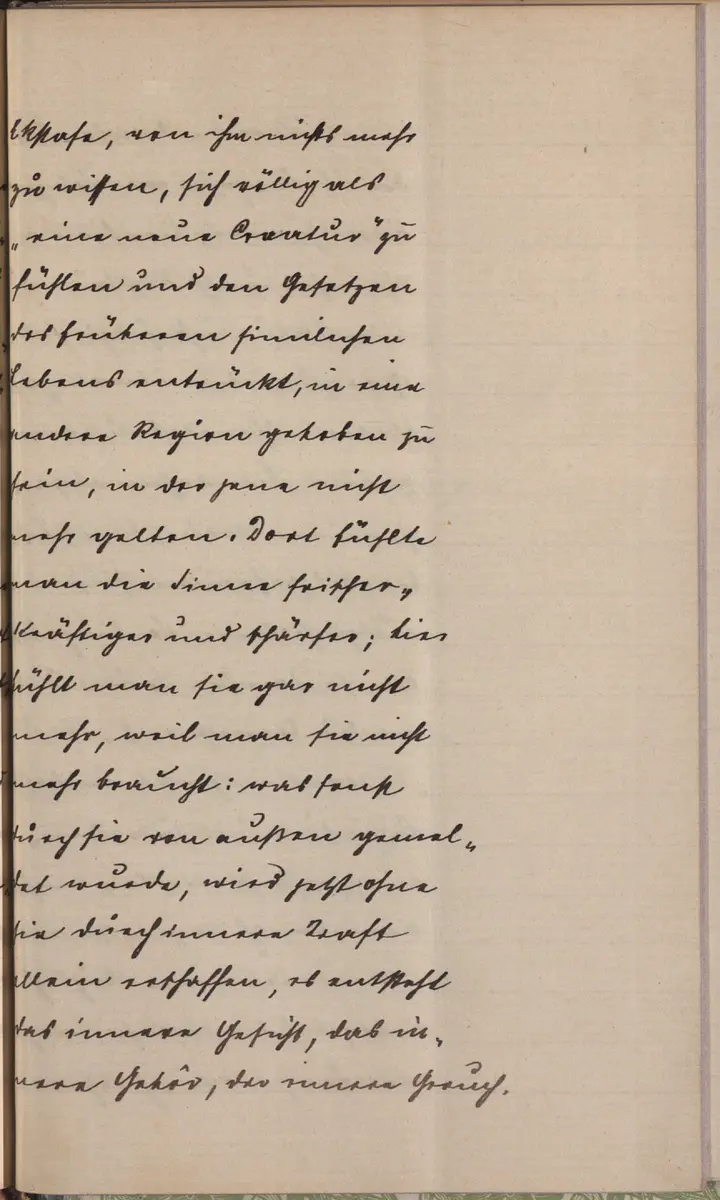 Ekstase, von ihm nichts mehr
zu wissen, sich völlig als
„eine neue Creatur" zu
fühlen und den Gesetzen
des früheren sinnlichen
Lebens entrückt, in eine
andere Region gehoben zu
sein, in der jene nicht
mehr gelten. Dort fühlte
man die Sinne frischer,
kräftiger und schärfer; hier
fühlt man sie gar nicht
mehr, weil man sie nicht
mehr braucht: was sonst
durch sie von außen gemel„
det wurde, wird jetzt ohne
sie durch innere Kraft
allein erschaffen, es entsteht
das innere Gesicht, das in„
nere Gehör, der innere Geruch.